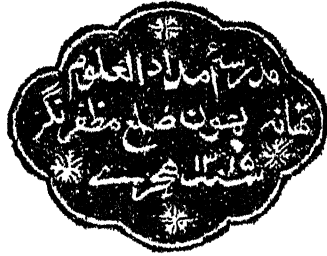 مدرسہ امداد العلوم
تھانہ بھون ضلع مظفر نگر
سنہ ۱۳۱۵ ہجری